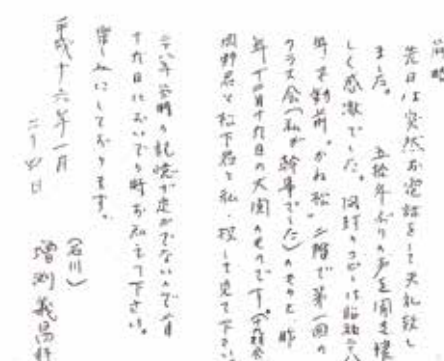 前略
先日は突然お電話をして失礼致し
ました。五拾年ぶりの声を聞き
しく感激でした。同封のコピーは昭和
年で駅前。かね松の二階で第一回の
クラス会(私が幹事でした)のものと、昨
年十一月十九日の大国のものです。
岡野君と松下君と私、探して見て下さい。
年当時の記憶が定かでないので
十九日においでの時お教え下さい。
楽しみにしております。
平成十六年一月
二十四日
(石川)
増渕義昌